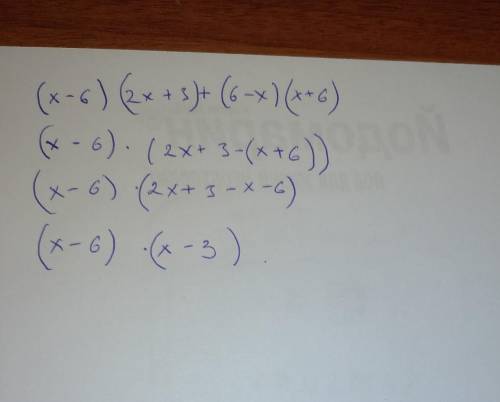 (x-6)(2x+3)+(6-x)(x+6)
(x-6)·(2x+3-(x+6))
(x-6)·(2x+3-x-6)
(x-6)·(x-3).
Йодомарин